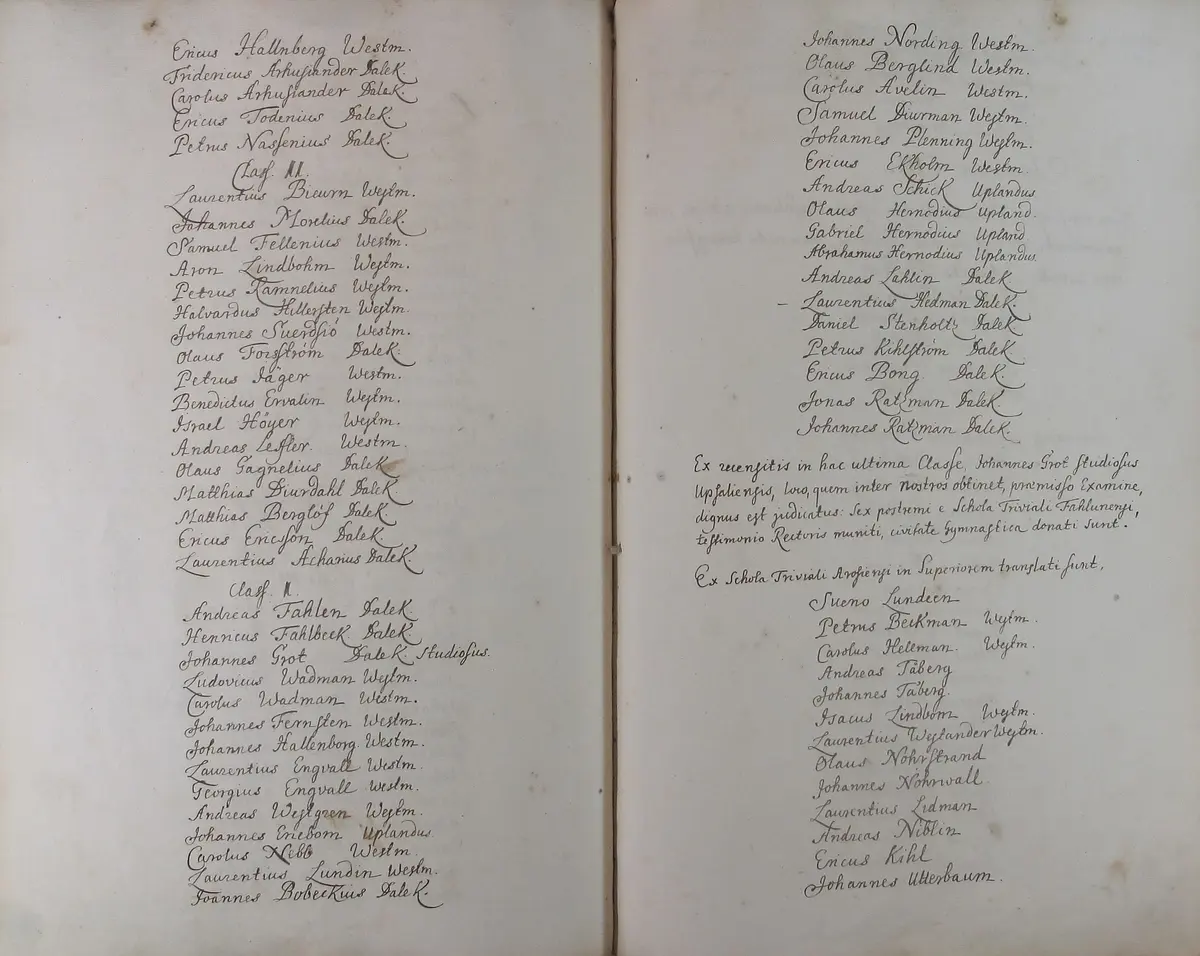 Ericus Hallnberg Westm.
Fridericus Arhusiander Dalek.
Carolus Arhusiander Dalek.
Ericus Todenius Dalek.
Petrus Nassenius Dalek.
Class. III.
Laurentius Bicurn Westm.
Johannes Morelius Dalek.
Samuel Fellenius Westm.
Aron Lindbohm Westm.
Petrus Ramnelius Westm.
Halvardus Hillersten Westm.
Johannes Suerdsió Westm.
Olaus Forsström Dalek.
Petrus Jäger Westm.
Benedictus Ervalin Westm.
Israel Höyer Westm.
Andreas Leffler. Westm.
Olaus Gagnelius Dalek
Matthias Diurdahl Dalek.
Matthias Berglöf Dalek.
Ericus Ericsson Dalek.
Laurentius Achanius Dalek.
Class. II.
Andreas Fahlen Dalek.
Henricus Fahlbeck Dalek.
Johannes Grot Dalek. Studiosus.
Ludovicus Wadman Westm.
Carolus Wadman Westm.
Johannes Fernsten Westm.
Johannes Hallenborg Westm.
Laurentius Engvall Westm.
Georgius Engvall Westm.
Andreas Westgren Westm.
Johannes Enebom Uplandus.
Carolus Nebb Westm.
Laurentius Lundin Westm.
Joannes Bobeckius Dalek.
Johannes Nording Westm.
Olaus Berglind Westm.
Carolus Avelin Westm.
Samuel Diurman Westm.
Johannes Plenning Westm.
Ericus Ekholm Westm.
Andreas Schick Uplandus
Olaus Hernodius Upland.
Gabriel Hernodius Upland
Abrahamus Hernodius Uplandus
Andreas Lahlin Dalek.
– Laurentius Hedman Dalek.
Daniel Stenholtz Dalek
Petrus Kihlström Dalek.
Ericus Bong Dalek.
Jonas Ratzman Dalek.
Johannes Ratzman Dalek.
Ex recensitis in hac ultima Classe, Johannes Grot Studiosus
Upsaliensis, loco, quem inter nostros obtinet, præmisso Examine,
dignus est judicatus: Sex postremi e Schola Triviali Fahlunensi,
testimonio Rectoris muniti, civitate Gymnastica donati sunt.
Ex Schola Triviali Arosiensi in Superiorem translati sunt,
Sueno Lundeen
Petrus Beckman Westm.
Carolus Helleman. Westm.
Andreas Täberg
Johannes Täberg.
Isacus Lindbom Westm.
Laurentius Westander Westm.
Olaus Nohrstrand
Johannes Nohrwall
Laurentius Lidman
Andreas Niblin
Ericus Kihl
Johannes Utterbaum.